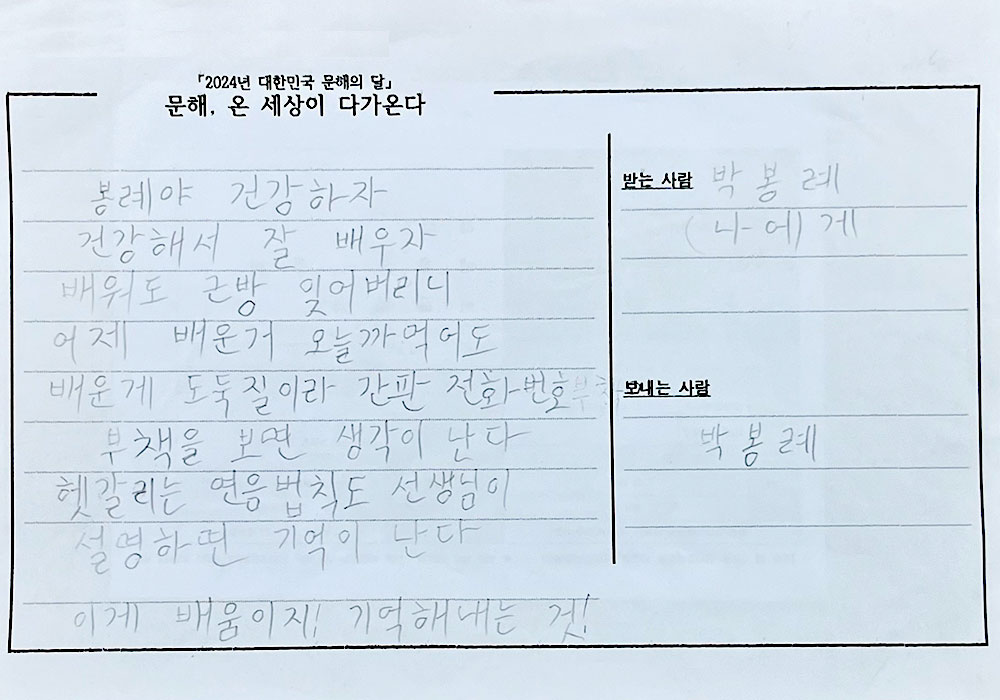 「2024년 대한민국 문해의 달」
문해, 온 세상이 다가온다
봉례야 건강하자
건강해서 잘 배우자
배워도 근방 잊어버리니
어제 배운거 오늘까먹어도
배운게 도둑질이라 간판 전화번호
부책을 보면 생각이 난다
헷갈리는 연음법칙도 선생님이
설명하면 기억이 난다
이게 배움이지! 기억해내는 것!
받는 사람 박봉례
(나에)게
보내는 사람
박봉례